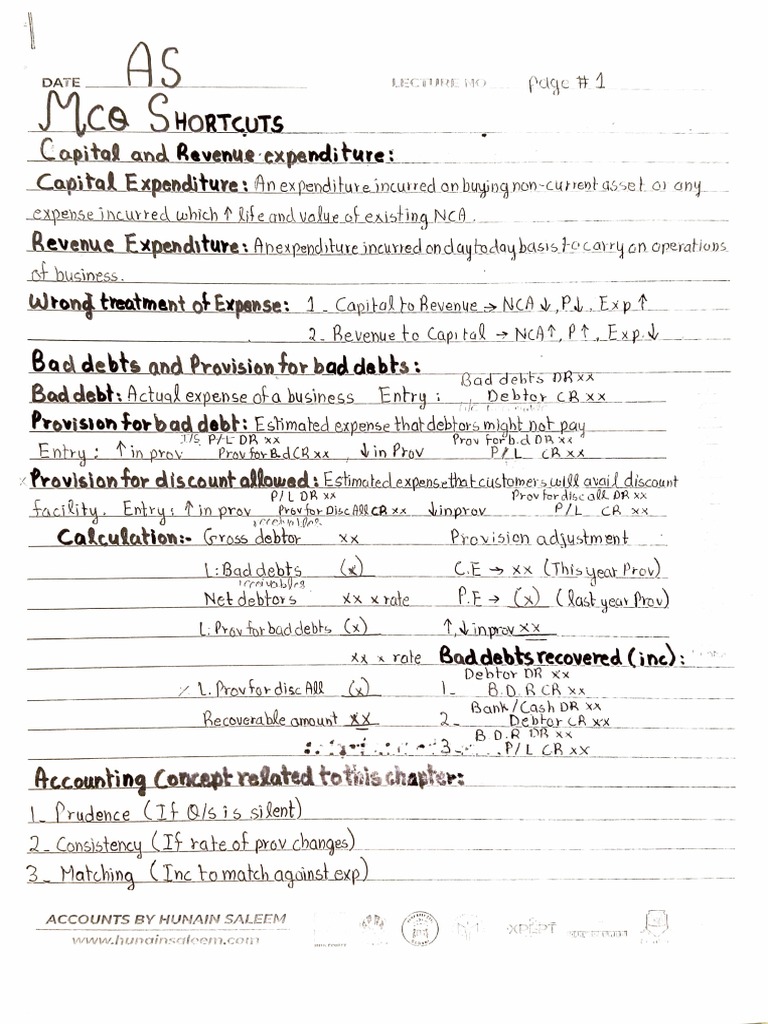 DATE AS LECTURE NO page #1
MCQ SHORTCUTS
Capital and Revenue expenditure:
Capital Expenditure: An expenditure incurred on buying non-current asset or any
expense incurred which ↑ life and value of existing NCA.
Revenue Expenditure: An expenditure incurred on day to day basis to carry on operations
of business.
Wrong treatment of Expense: 1_ Capital to Revenue → NCA↓, P↓, Exp↑
2_ Revenue to Capital → NCA↑, P↑, Exp↓
Bad debts and Provision for bad debts:
Bad debts DR xx
Bad debt: Actual expense of a business Entry: Debtor CR xx
Provision for bad debt: Estimated expense that debtors might not pay
I/S P/L DR xx Prov for b.d DR xx
Entry: ↑ in prov Prov for B.d CR xx ↓ in Prov P/L CR xx
Provision for discount allowed: Estimated expense that customers will avail discount
P/L DR xx Prov for disc all DR xx
facility. Entry: ↑ in prov Prov for Disc All CR xx ↓ in prov P/L CR xx
receivables
Calculation:- Gross debtor xx Provision adjustment
L: Bad debts (x) C.E → xx (This year Prov)
receivables
Net debtors xx x rate P.E → (x) (last year Prov)
L: Prov for bad debts (x) ↑,↓ in prov xx
xx x rate Bad debts recovered (inc):
Debtor DR xx
L. Prov for disc All (x) 1_ B.D.R CR xx
Bank/Cash DR xx
Recoverable amount xx 2_ Debtor CR xx
B.D.R DR xx
3_ P/L CR xx
Accounting Concept related to this chapter:
1_ Prudence (If Q/s is silent)
2_ Consistency (If rate of prov changes)
3_ Matching (Inc to match against exp)
ACCOUNTS BY HUNAIN SALEEM
www.hunainsaleem.com